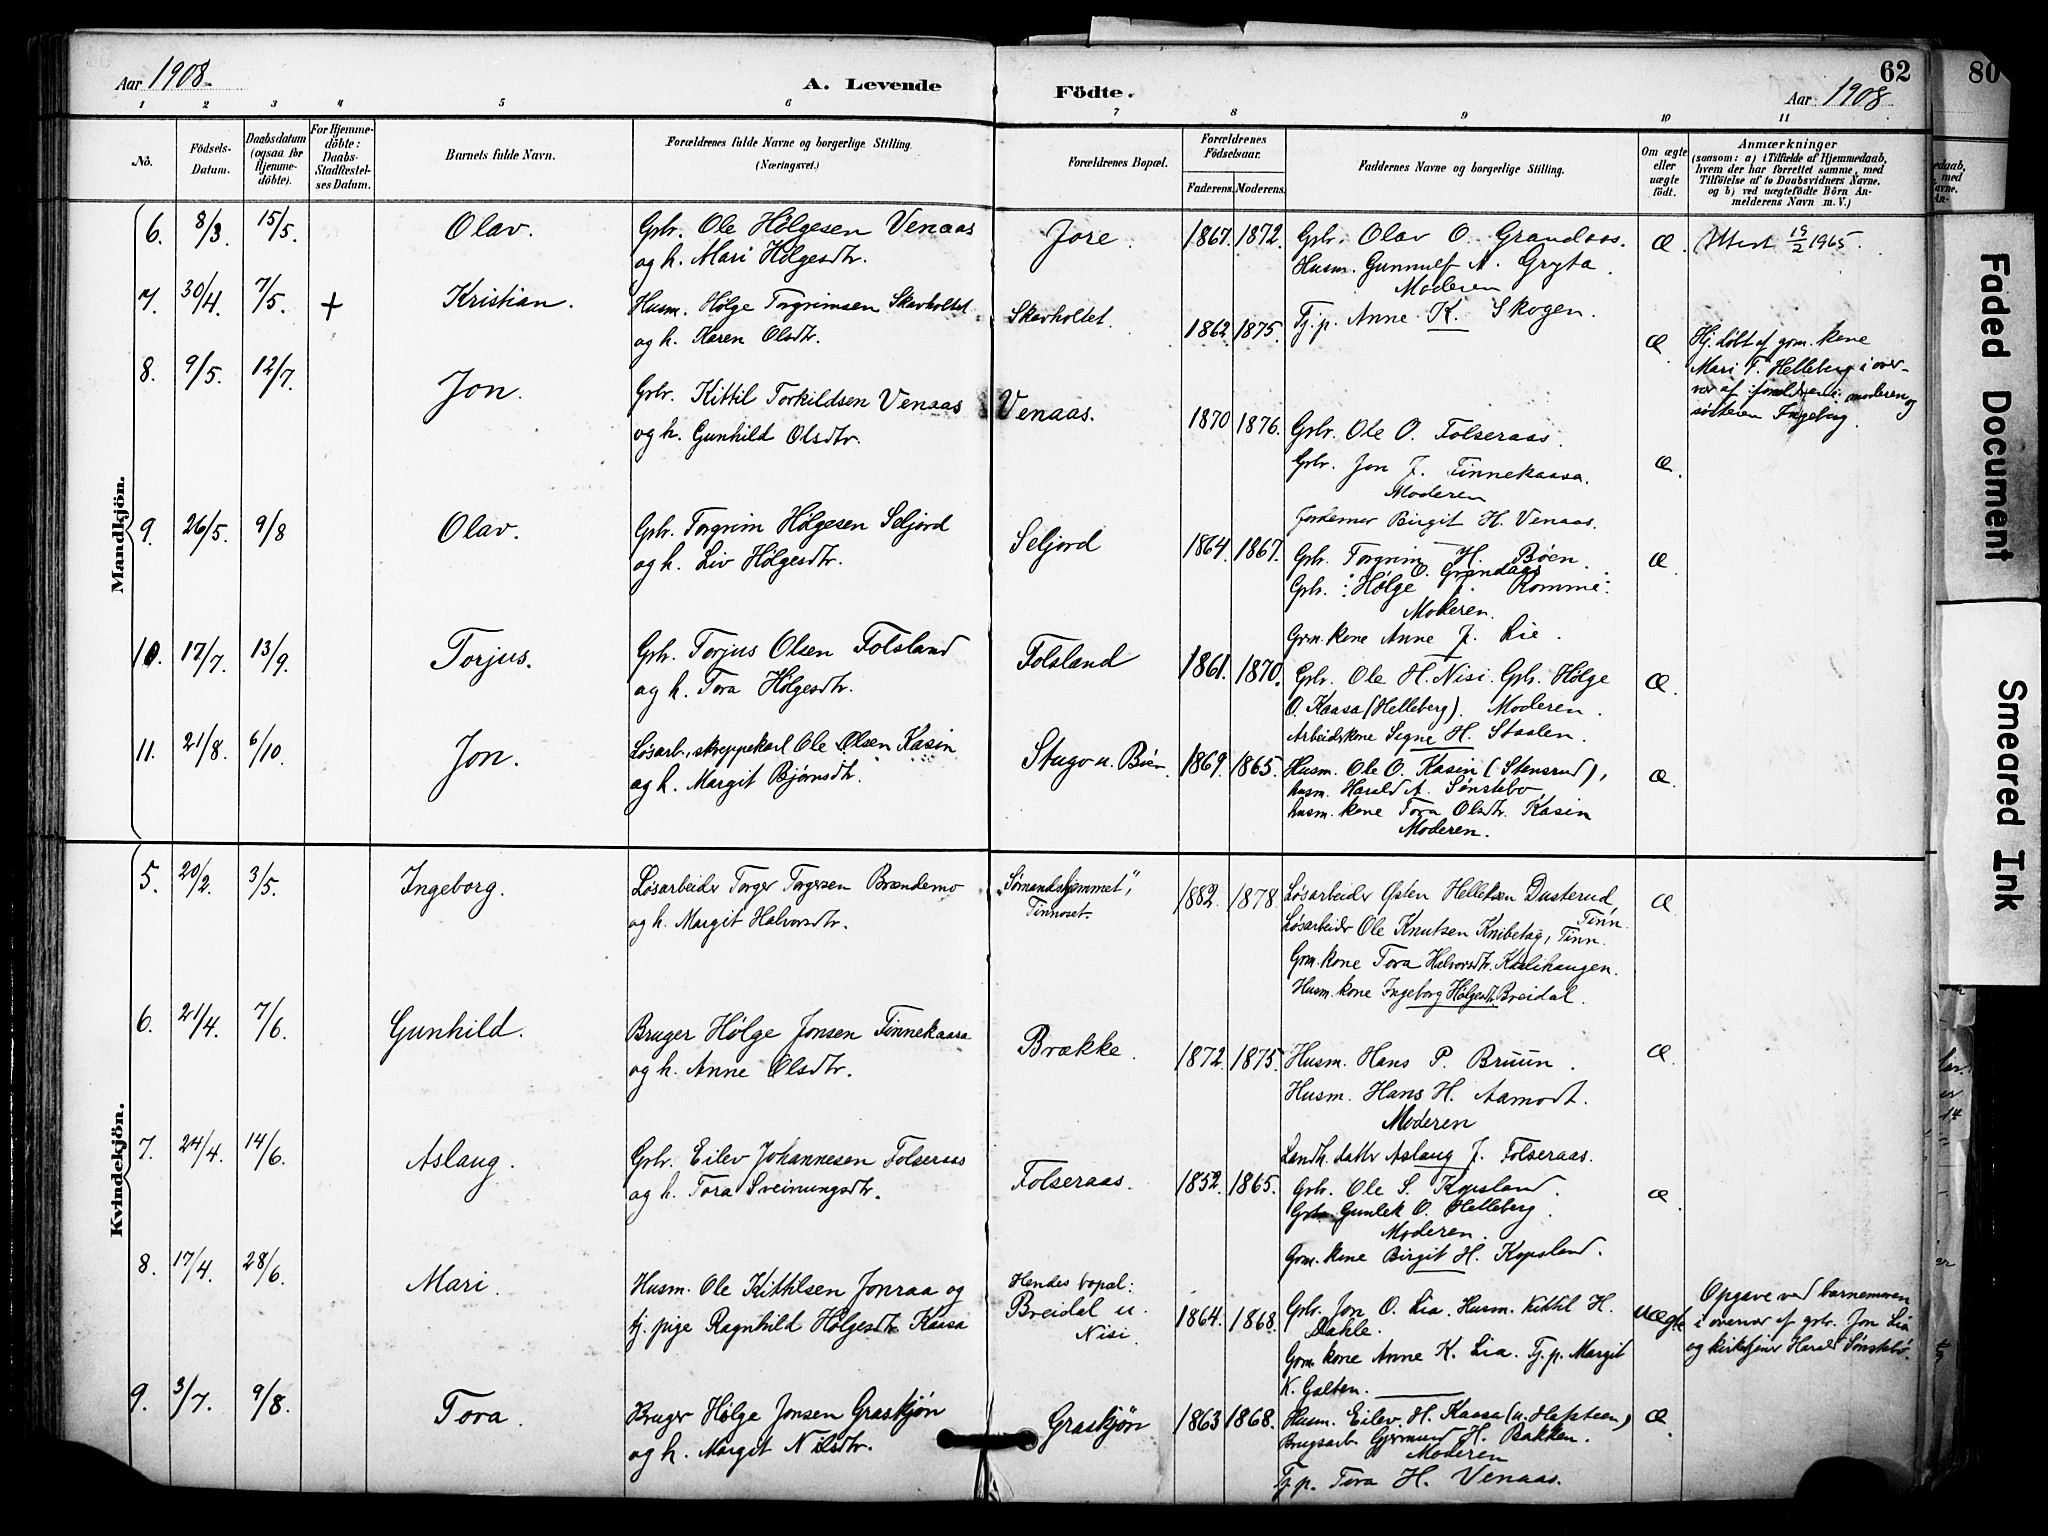 Aar 1908.
A. Levende
Födte.
Aar 1908
62
80
1 2 3 4 5 6 7 8 9 10 11
No.
Födsels-Datum.
Daabsdatum (ogsaa for Hjemme-döbte).
For Hjemme-döbte: Daabs-Stadfæstel-ses Datum.
Barnets fulde Navn.
Forældrenes fulde Navne og borgerlige Stilling. (Næringsvei.)
Forældrenes Bopæl.
Forældrenes Födselsaar.
Faderens. Moderens.
Faddernes Navne og borgerlige Stilling.
Om ægte eller uægte født.
Anmærkninger
(saasom: a) i Tilfælde af Hjemmedaab,
hvem der har forrettet samme, med
Tilföielse af to Daabsvidners Navne,
og b) ved uægtefödte Börn An-
melderens Navn m. V.)
Mandkjön.
6. 8/3. 15/5. Olav. Gbr. Ole Hølgesen Venaas
og h. Mari Hølgesdtr.
Jore. 1867. 1872. Gbr. Olav O. Grandaas.
Husm. Gunnulf A. Gryta.
Moderen
Tj.p. Anne K. Skogen.
Æ. Attest 19/2 1965.
7. 30/4. 7/5. + Kristian. Husm. Hølge Torgrimsen Skavholtet
og h. Karen Olsdtr.
Skavholtet. 1862. 1875.
Æ. Hj. døbt af gm. kone
Mari T. Helleberg i over-
vær af moderen og
søsteren Ingeborg.
8. 9/5. 12/7. Jon. Gbr. Kittil Torkildsen Venaas
og h. Gunhild Olsdtr.
Venaas. 1870 1876. Gbr. Ole O. Folseraas.
Gbr. Jon J. Finnekaasa.
Moderen
Birgit H. Venaas.
Æ.
9. 26/5. 9/8 Olav. Gbr. Torgrim Hølgesen Seljord
og h. Liv Hølgesdtr.
Seljord 1864. 1867. Gbr. Torgrim H. Bøen.
O. Grandaas
Gbr. Hølge J. Romme.
Moderen.
Grm. kone Anne J. Lie.
Æ.
10. 17/7. 13/9. Torjus. Gbr. Torjus Olsen Folsland
og h. Tora Hølgesdtr.
Folsland 1861. 1870. Gbr. Ole H. Nisi. Gbr. Hølge
O. Kaasa (Helleberg). Moderen.
Arbeidskone Segne H. Staalen.
Æ.
11. 21/8. 6/10. Jon. Løsarb., skreppekarl Ole Olsen Kasin
og h. Margit Bjørnsdtr.
Stugo u. Bøen 1869. 1865. Husm. Ole O. Kasin (Stensrud),
husm. Harald A. Sønstebø,
husm. kone Tora Olsdtr. Kasin
Moderen.
Æ.
Kvindekjön.
5. 20/2. 3/5. Ingeborg. Løsarbeider Torger Torgersen Brændemo
og h. Margit Halvorsdtr.
"Sømandshjemmet",
Tinnoset.
1882. 1878. Løsarbeider Østen Helleksen Dusterud,
Tinn.
Løsarbeider Ole Knutsen Knibetag, Tinn.
Grm. kone Tora Halvorsdtr. Kaslihaugen.
Husm. kone Ingeborg Hølgesdtr. Breidal.
Æ
6. 21/4. 7/6. Gunhild. Bruger Hølge Jonsen Finnekaasa
og h. Anne Olsdtr.
Brække. 1872. 1875. Husm. Hans P. Bruun.
Husm. Hans H. Aamodt.
Moderen
Landh. datter Aslaug J. Folseraas.
Æ.
7. 24/4. 14/6. Aslaug. Gbr. Eilev Johannesen Folseraas
og h. Tora Sveinungsdtr.
Folseraas. 1852. 1865. Gbr. Ole S. Kopsland.
Gbr. Gunlek O. Helleberg.
Moderen.
Grm. kone Birgit H. Kopsland.
Æ
8. 17/4. 28/6. Mari. Husm. Ole Kittilsen Jonraa og
tj. pige Ragnhild Hølgesdtr. Kaasa
Hendes bopæl:
Breidal u.
Nisi.
1864. 1868. Gbr. Jon O. Lia. Husm. Kittil H.
Dahle.
Grm. kone Anne K. Lia. Tj. p. Margit
K. Galten.
uægte Opgave ved barnemoren
i overvær af gbr. Jon Lia
og kirketjener Harald Sønstebø.
9. 3/7. 9/8. Tora. Bruger Hølge Jonsen Graskjøn
og h. Margit Nilsdtr.
Graskjøn 1863 1868. Husm. Eilev H. Kaasa (u. Hafsteen)
Brugsarb. Gjermund H. Bakken.
Moderen
Tj. p. Tora H. Venaas.
Æ.
Faded Document
Smeared Ink